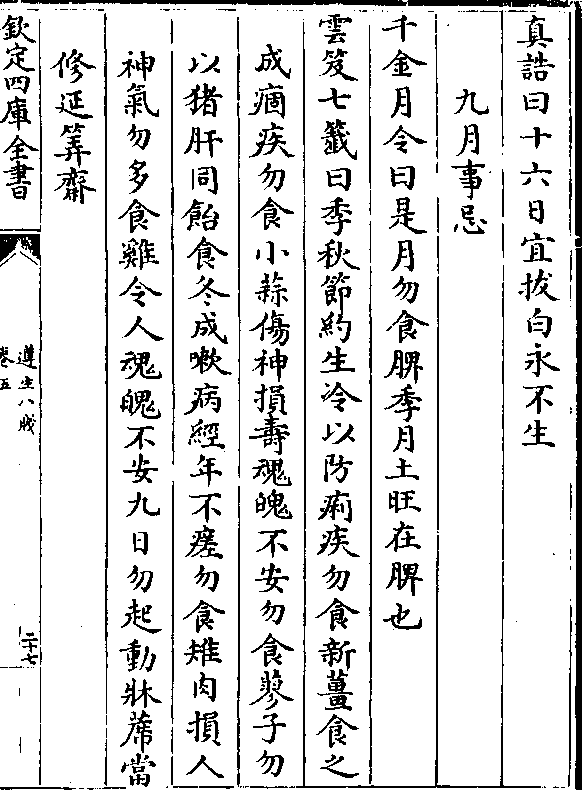 真誥曰十六日宜拔白永不生
九月事忌
千金月令曰是月勿食脾季月土旺在脾也
雲笈七籤曰季秋節約生冷以防痢疾勿食新薑食之
成痼疾勿食小蒜傷神損壽魂魄不安勿食蓼子勿
以猪肝同飴食冬成嗽病經年不瘥勿食雉肉損人
神氣勿多食雞令人魂魄不安九日勿起動牀蓆當
修延筭齋
欽定四庫全書
遵生八牋
卷五
二十七